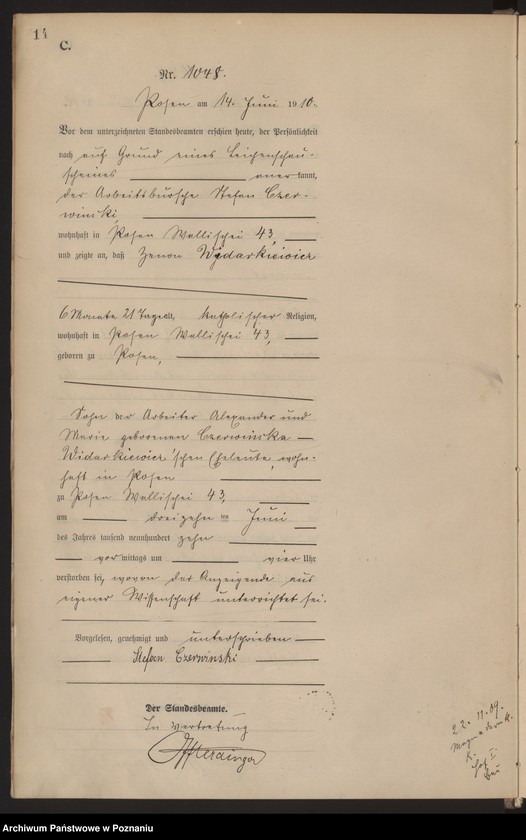 14
C.
Nr. 1048.
Posen am 14. Juni 1910.
Vor dem unterzeichneten Standesbeamten erschien heute, der Persönlichkeit
nach auf Grund eines Leichenschau-
scheines anerkannt,
der Arbeitsbursche Stefan Czer-
winski,
wohnhaft in Posen Wallischei 43,
und zeigte an, daß Zenon Widarkiewicz
6 Monate 21 Tage alt, katholischer Religion,
wohnhaft in Posen Wallischei 43,
geboren zu Posen,
Sohn der Arbeiter Alexander und
Marie geborenen Czerwinska
Widarkiewicz'schen Eheleute, wohn-
haft in Posen
zu Posen Wallischei 43,
am dreizehnten Juni
des Jahres tausend neunhundert zehn
vormittags um vier Uhr
verstorben sei, wovon der Anzeigende aus
eigener Wissenschaft unterrichtet sei.
Vorgelesen, genehmigt und unterschrieben
Stefan Czerwinski
Der Standesbeamte.
In Vertretung
22. 11. 09.
Archiwum Państwowe w Poznaniu